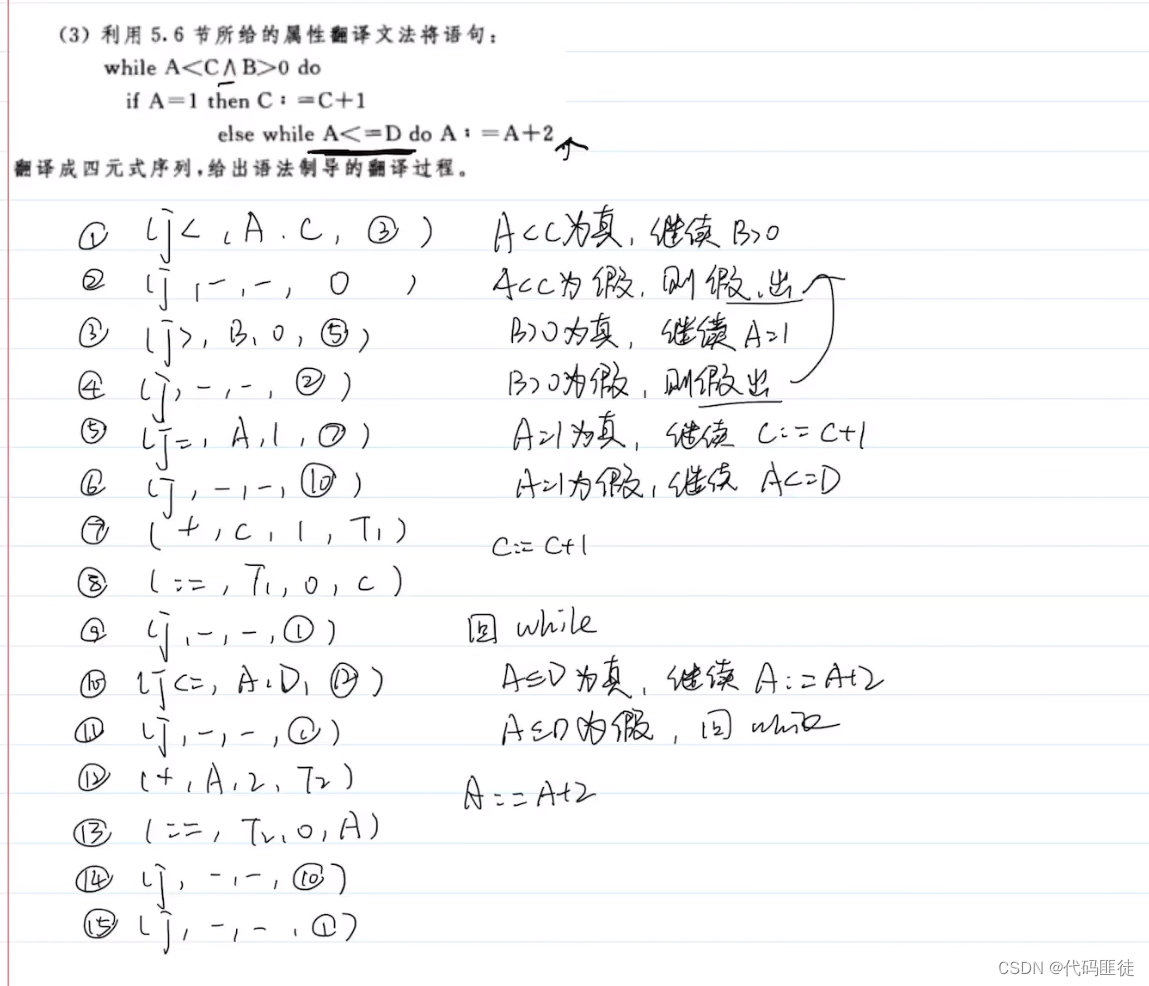 (3) 利用 5.6 节所给的属性翻译文法将语句:
while A<C∧B>0 do
if A=1 then C:=C+1
else while A<=D do A:=A+2
翻译成四元式序列,给出语法制导的翻译过程。
① (j<, A, C, ③) A<C为真, 继续 B>0
② (j, -, -, 0 ) A<C为假, 则假出
③ (j>, B, 0, ⑤) B>0为真, 继续 A=1
④ (j, -, -, ②) B>0为假, 则假出
⑤ (j=, A, 1, ⑦) A=1为真, 继续 C:=C+1
⑥ (j, -, -, ⑩) A=1为假, 继续 A<=D
⑦ (+, C, 1, T1)
C:=C+1
⑧ (:=, T1, 0, C)
⑨ (j, -, -, ①) 回 while
⑩ (j<=, A, D, ⑫) A≤D为真, 继续 A:=A+2
⑪ (j, -, -, ①) A≤D为假, 回 while
⑫ (+, A, 2, T2)
A:=A+2
⑬ (:=, T2, 0, A)
⑭ (j, -, -, ⑩)
⑮ (j, -, -, ①)
CSDN @代码匪徒